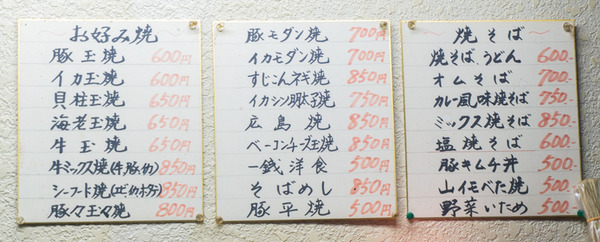 お好み焼
豚玉焼 600円
イカ玉焼 600円
貝柱玉焼 650円
海老玉焼 650円
牛玉焼 650円
牛ミックス焼(牛,豚,わ) 850円
シーフード焼(エビ,わ,ホタテ) 850円
豚々玉々焼 800円
豚モダン焼 700円
イカモダン焼 700円
すじこんネギ焼 850円
イカシソ明太子焼 750円
広島焼 850円
ベーコンチーズ玉焼 850円
一銭洋食 500円
そばめし 850円
豚平焼 500円
焼そば
焼そば、うどん 600.-
オムそば 700.-
カレー風味焼そば 750.-
ミックス焼そば 850.-
塩焼そば 600.-
豚キムチ丼 500.-
山イモベた焼 500.-
野菜いため 500.-